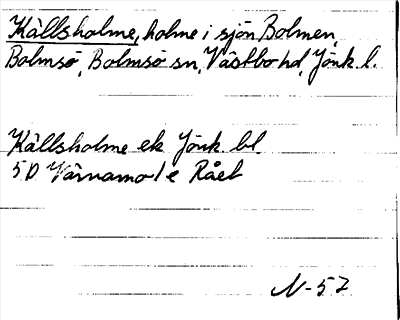 Källsholme, holme i sjön Bolmen,
Bolmsö, Bolmsö sn, Västbo hd, Jönk. l.
Källsholme ek Jönk. bl.
5D Värnamo 1 e Råel
N-57